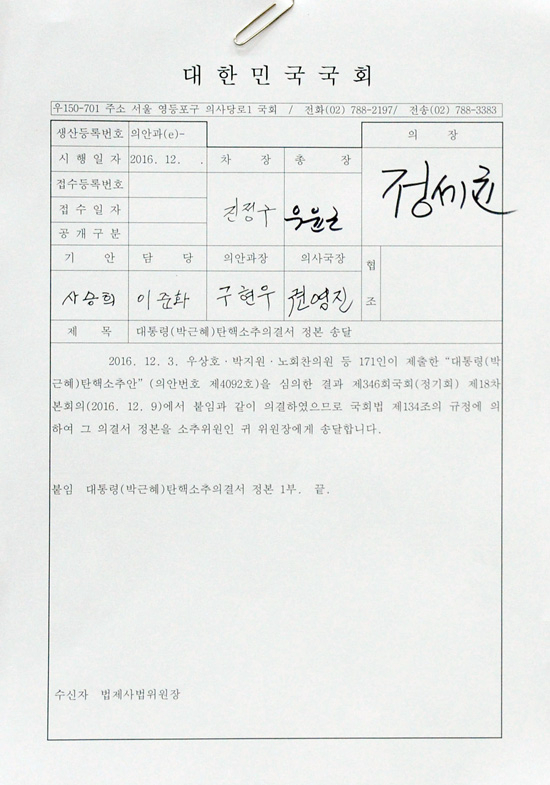 대한민국국회
우150-701 주소 서울 영등포구 의사당로1 국회 / 전화(02) 788-2197/ 전송(02) 788-3383
생산등록번호 의안과(e)- 의 장
시행일자 2016. 12. . 차 장 총 장
정세균
접수등록번호
진정구 우윤근
접수일자
공개구분
기 안 담 당 의안과장 의사국장 협
사승희 이준화 구현우 권영진
조
제 목 대통령(박근혜)탄핵소추의결서 정본 송달
2016. 12. 3. 우상호·박지원·노회찬의원 등 171인이 제출한 "대통령(박
근혜)탄핵소추안"(의안번호 제4092호)을 심의한 결과 제346회국회(정기회) 제18차
본회의(2016. 12. 9)에서 붙임과 같이 의결하였으므로 국회법 제134조의 규정에 의
하여 그 의결서 정본을 소추위원인 귀 위원장에게 송달합니다.
붙임 대통령(박근혜)탄핵소추의결서 정본 1부. 끝.
수신자 법제사법위원장